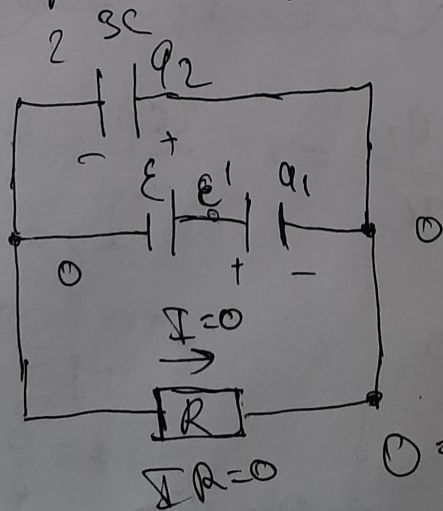 2 3C q2
- +
ε ε' q1
0 + - 0
I=0
→
R
IR=0 0=